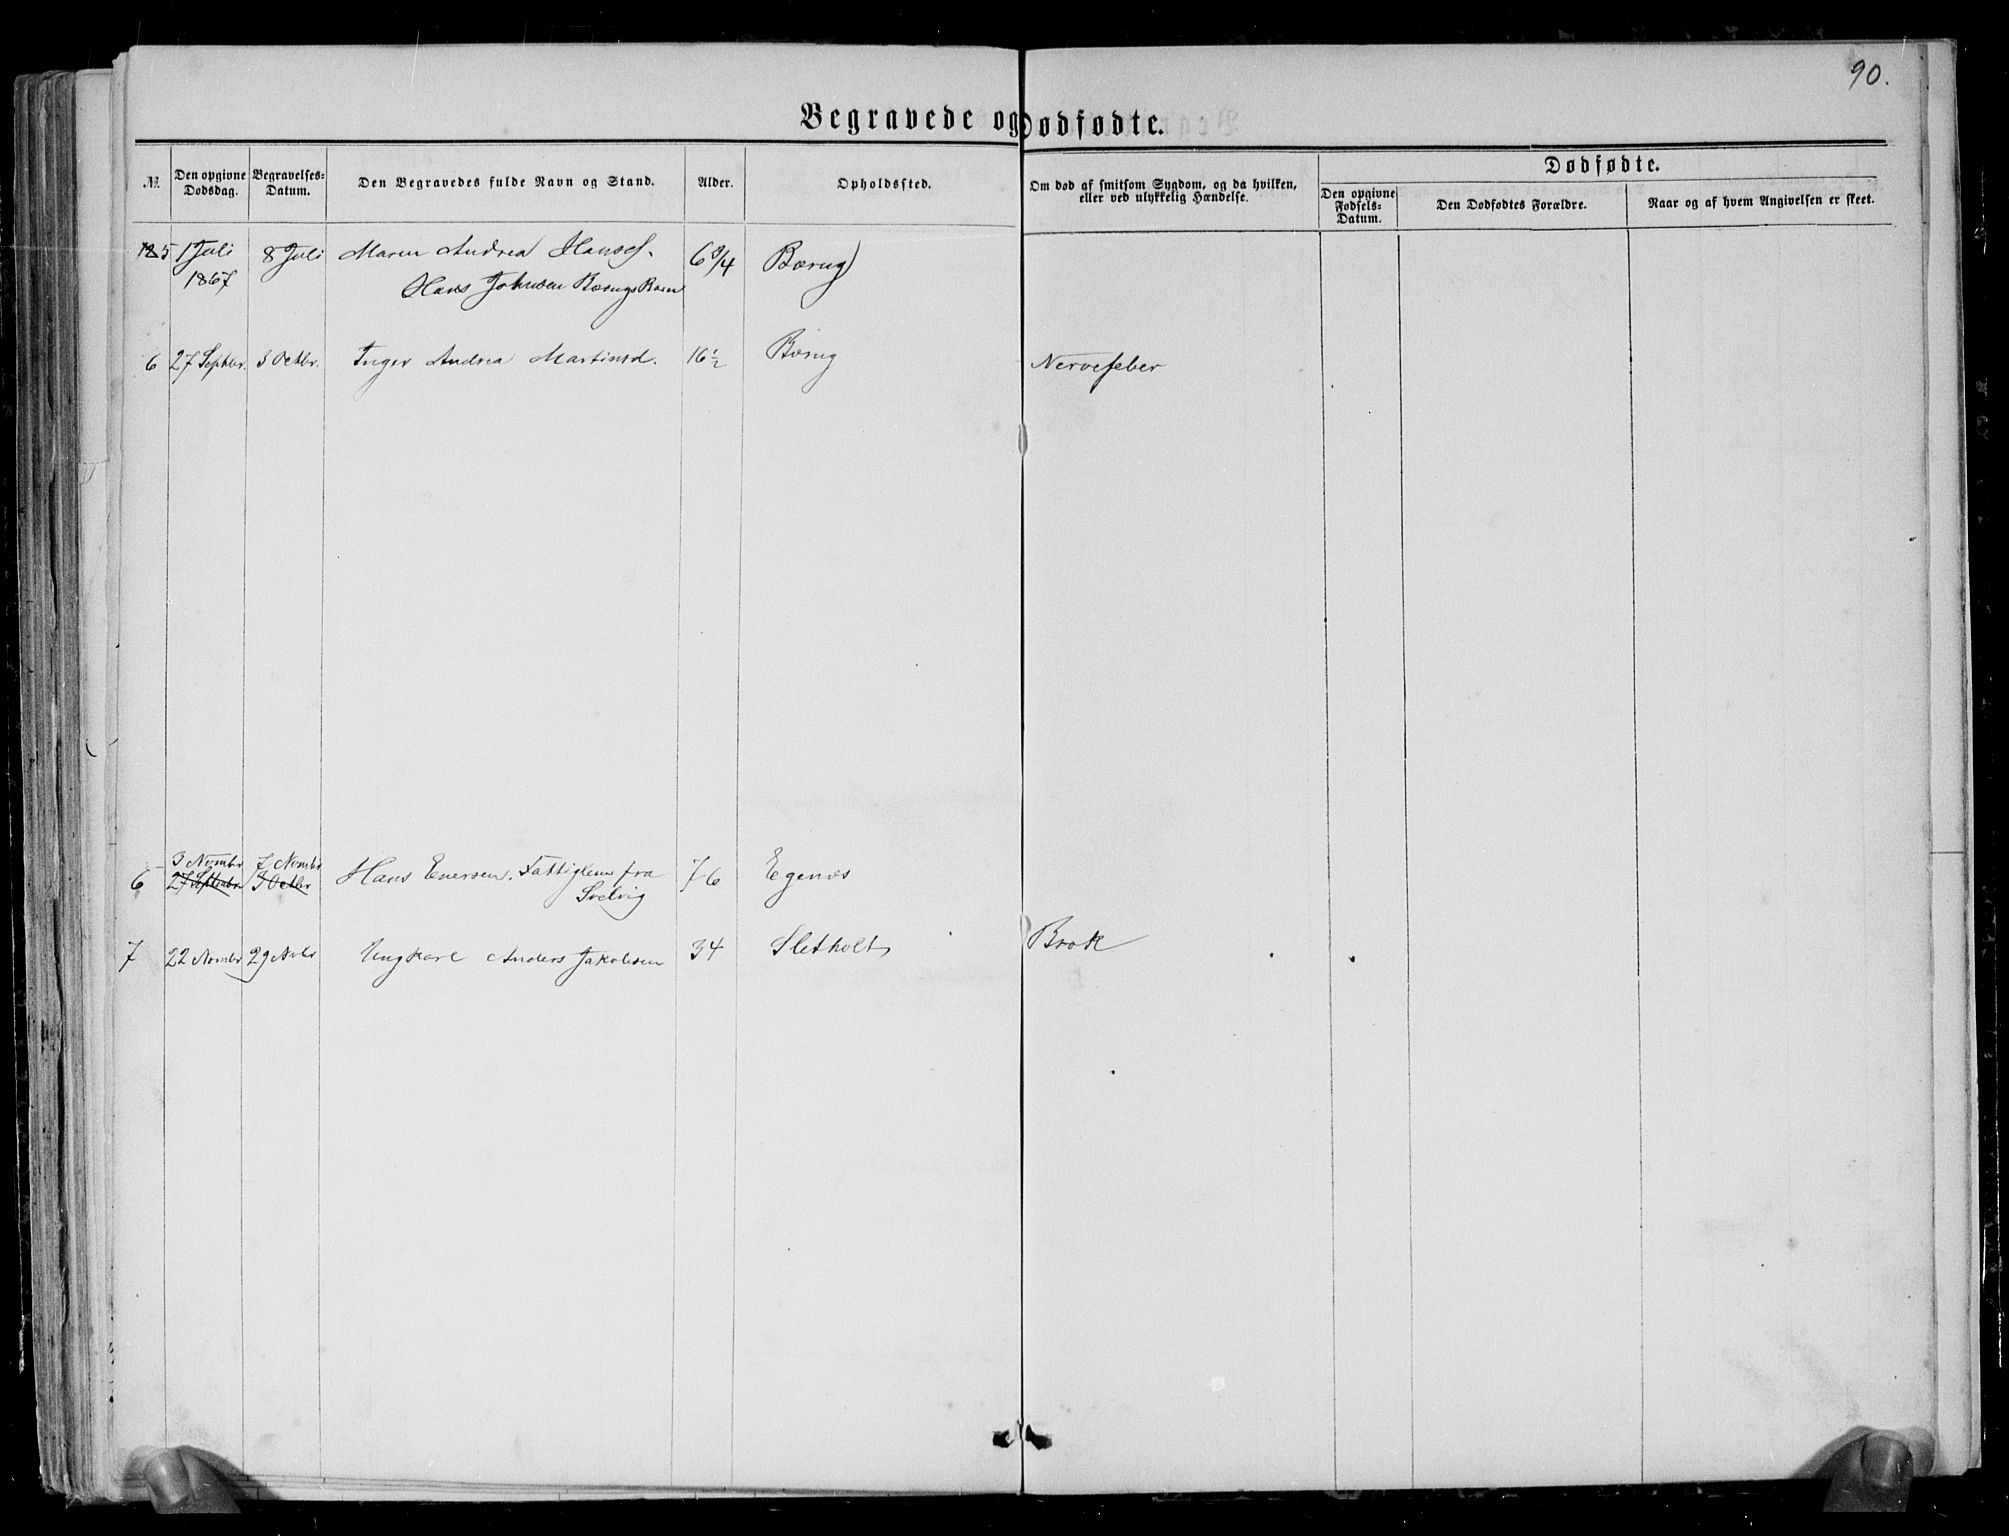 90.
Begravede og Dødfødte.
№ Den opgivne Dødsdag. Begravelses-Datum. Den Begravedes fulde Navn og Stand. Alder. Opholdssted. Om død af smitsom Sygdom, og da hvilken, eller ved ulykkelig Hændelse. Dødfødte.
Den opgivne Fødsels-Datum. Den Dødfødtes Forældre. Naar og af hvem Angivelsen er skeet.
5 1 Juli 8 Juli Maren Andrea Hansd. 6 3/4 Bærug
1867 Hans Johnsen Bærugs Barn
6 27 Septbr. 5 Octbr. Inger Andrea Martinsd. 16 1/2 Bærug Nervefeber
3 Novmbr 7 Novmbr
6 27 Septembr 5 Octbr Hans Enersen. Fattiglem fra 76 Egenæs
Svelvig
7 22 Novmbr 29 Novbr Ungkarl Anders Jakobsen 34 Sletholt Brok